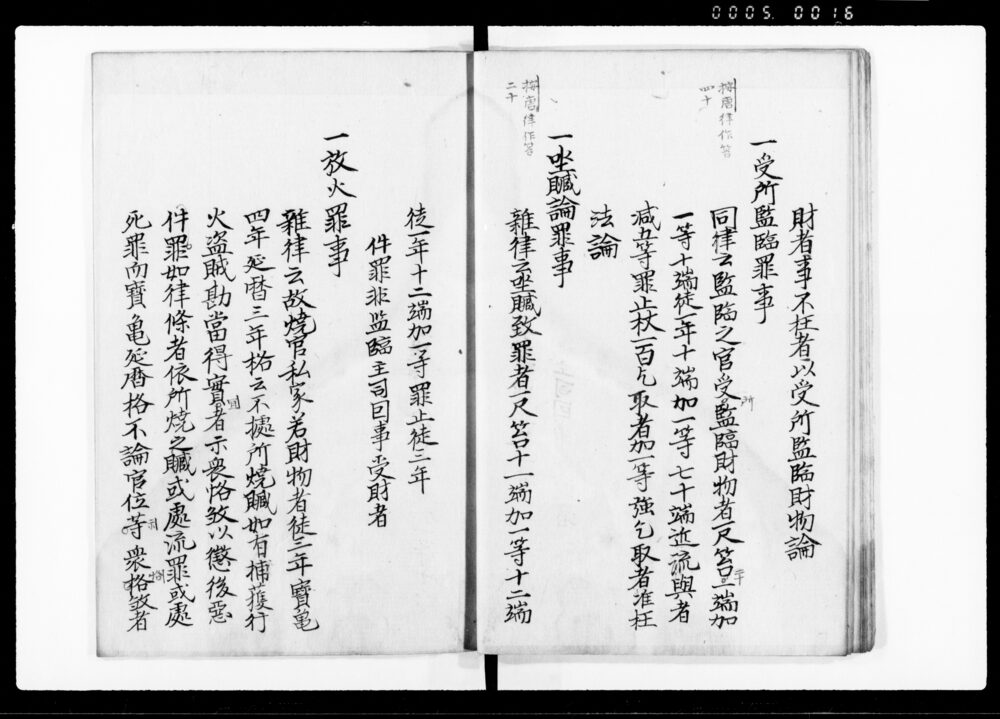 0005 0016
按唐律作笞
四十
財者事不枉者以受所監臨財物論
一受所監臨罪事
同律云監臨之官受所監臨財物者一尺笞二十一端加
一等十端徒一年十端加一等七十端近流与者
减五等罪止杖一百乞取者加一等強乞取者准枉
法論
按唐律作笞
二十
一坐贓論罪事
雜律云坐贓致罪者一尺笞十一端加一等十二端
徒一年十二端加一等罪止徒三年
件罪非监臨主司因事受財者
一放火罪事
雜律云故燒官私家若財物者徒三年寶龜
四年延暦三年格云不據所燒贓如有捕獲行
火盜賊勘當得實者示衆格敘以懲後惡
件罪如律條者依所燒之贓或處流罪或處
死罪而寶龜延暦格不論官位等衆格敘者